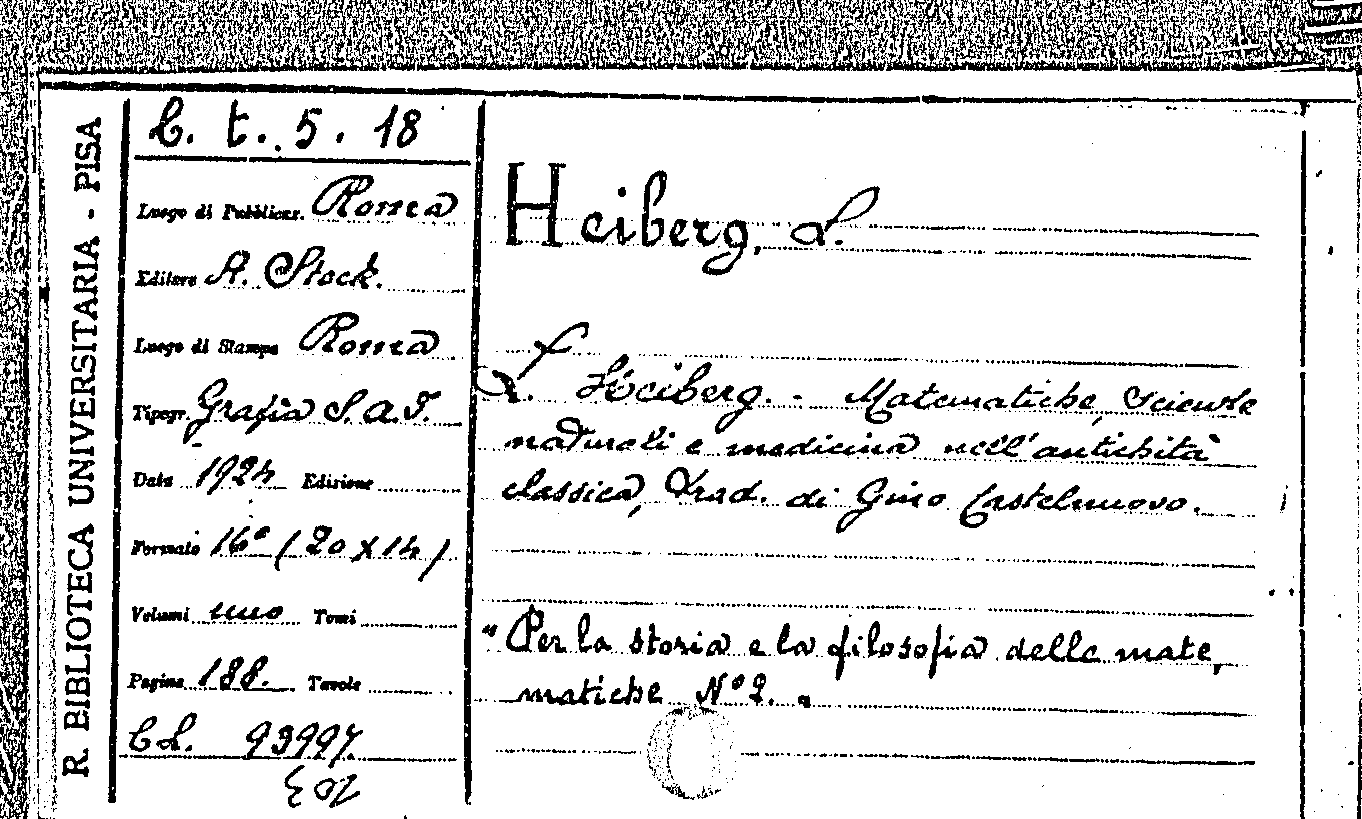 R. BIBLIOTECA UNIVERSITARIA - PISA
C. t. 5. 18
Luogo di Pubblicaz. Roma
Editore A. Stock.
Luogo di Stampa Roma
Tipogr. Grafia S.a.I.
Data 1924 Edizione
Formato 16° (20 x 14)
Volumi uno Tomi
Pagine 188. Tavole
93997
Heiberg, L.
L. Heiberg. - Matematiche, scienze
naturali e medicina nell'antichità
classica, Trad. di Gino Castelnuovo.
"Per la storia e la filosofia delle mate,
matiche N° 2. "